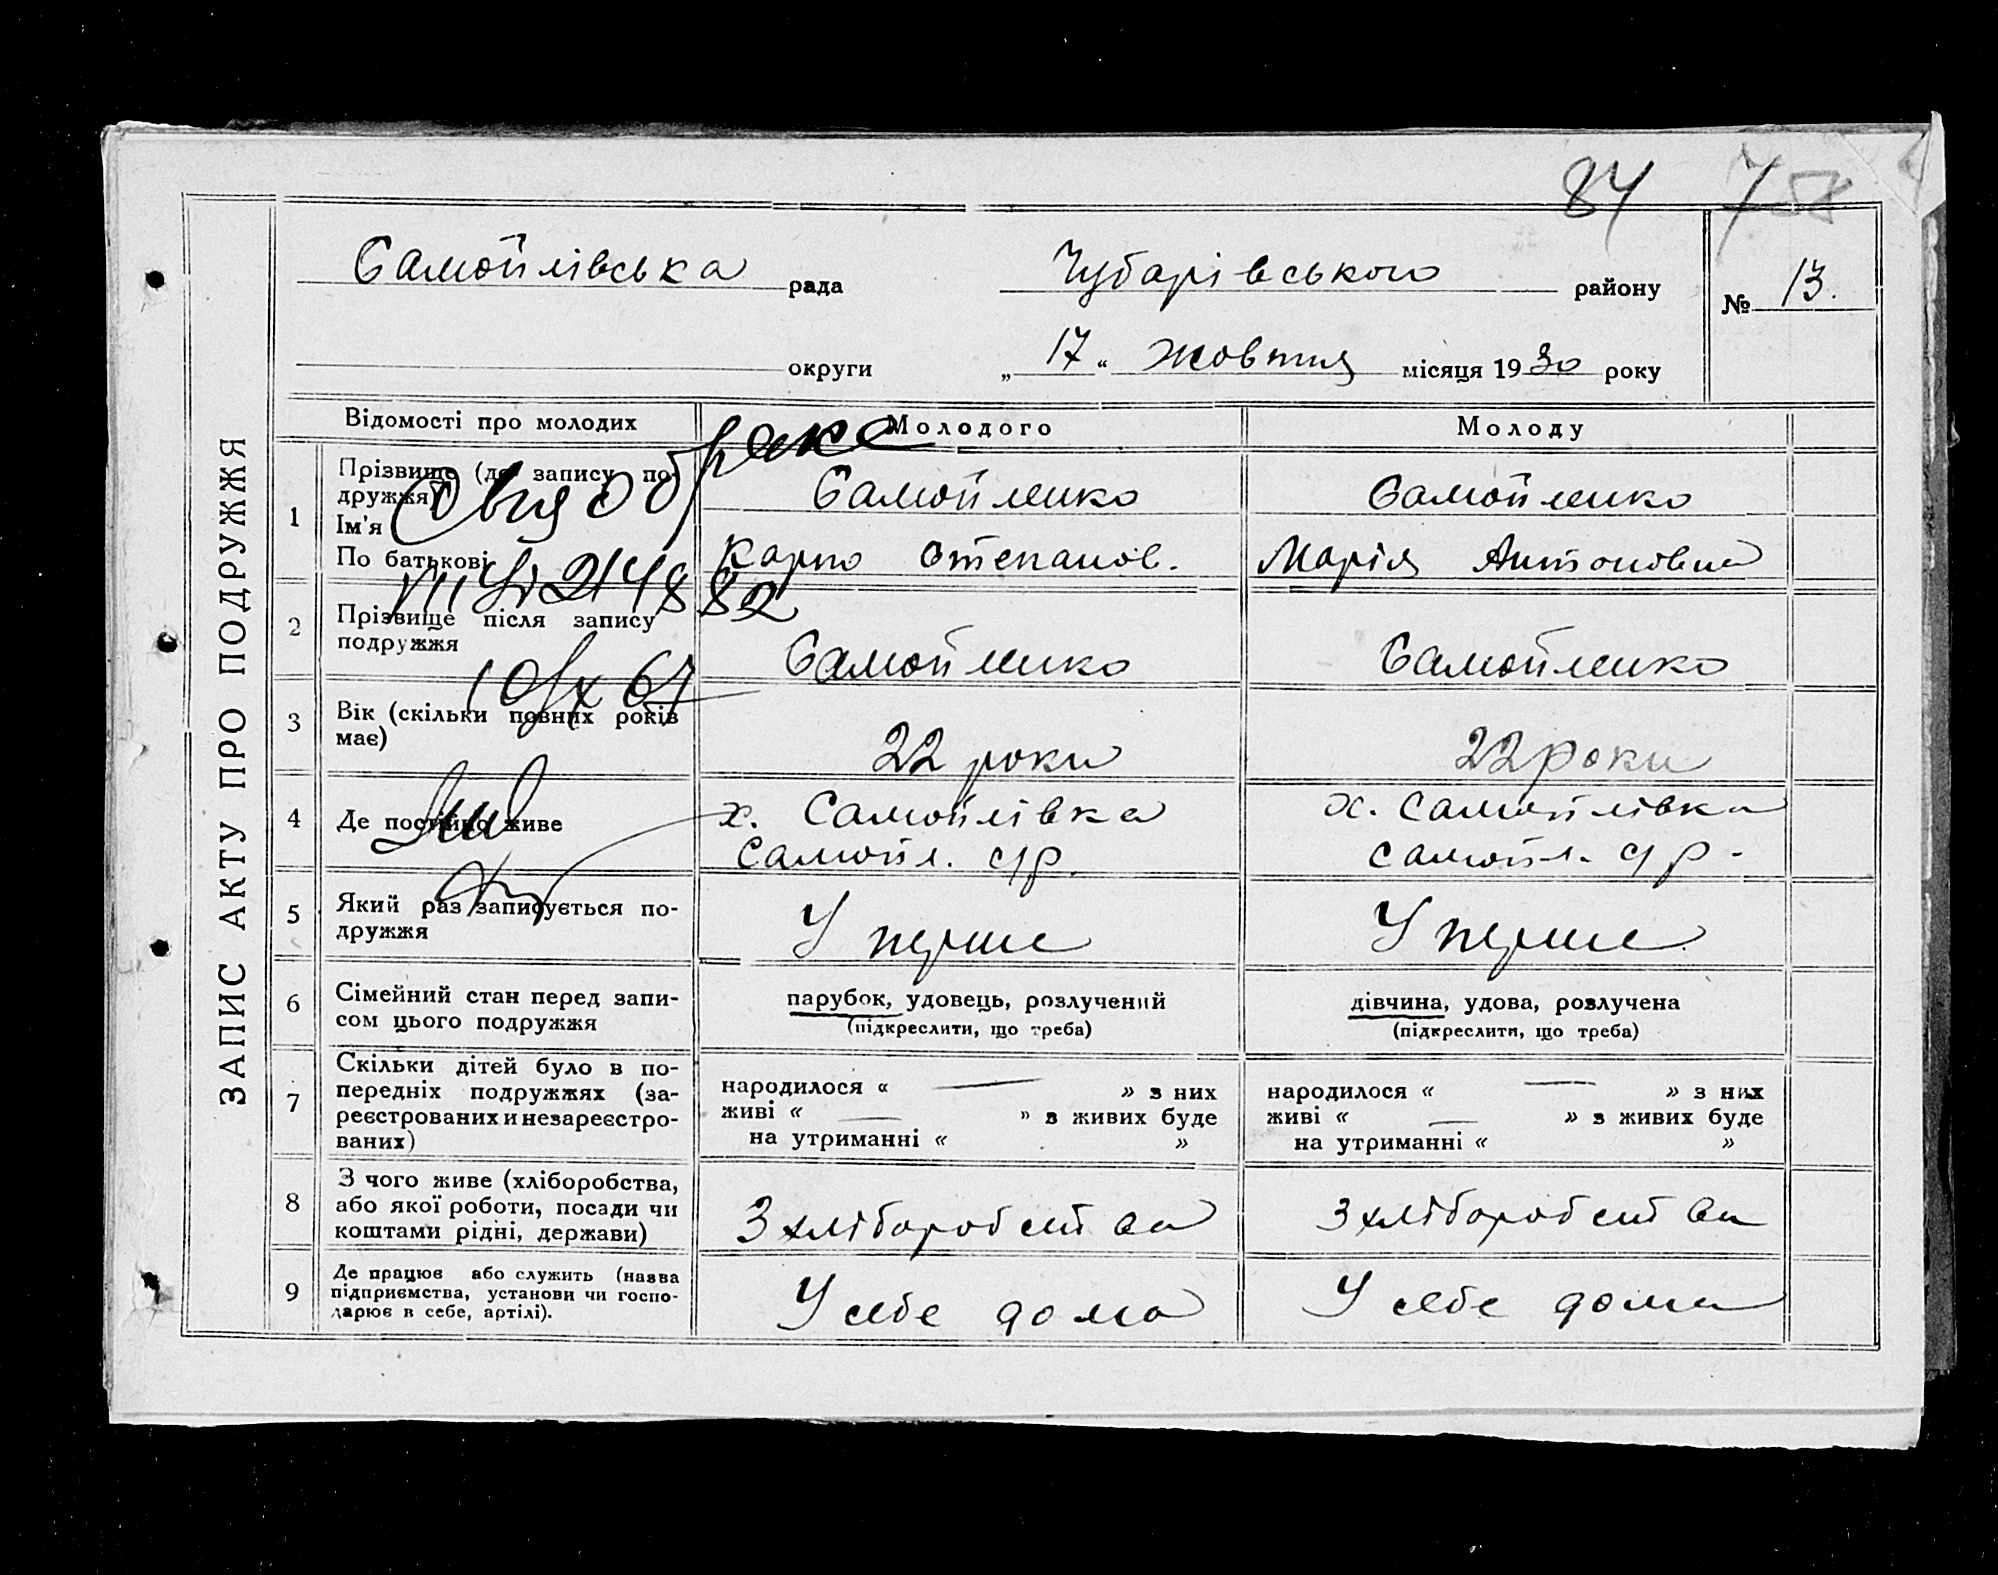 87 7 58
ЗАПИС АКТУ ПРО ПОДРУЖЖЯ
Самойлівська рада
Чубарівського району
№ 13.
округи
„ 17 “ жовтня місяця 1930 року
Відомості про молодих
Молодого
Молоду
1
Прізвище (до запису по-
дружжя)
Ім'я
По батькові
Самойленко
Карпо Степанов.
Самойленко
Марія Антоновна
Св. я о браке
2148 82
2
Прізвище після запису
подружжя
Самойленко
Самойленко
10/X 67
3
Вік (скільки повних років
має)
22 роки
22 роки
4
Де постійно живе
х. Самойлівка
Самойл. с/р.
х. Самойлівка
Самойл. с/р.
5
Який раз записується по-
дружжя
У перше
У перше
6
Сімейний стан перед запи-
сом цього подружжя
парубок, удовець, розлучений
(підкреслити, що треба)
дівчина, удова, розлучена
(підкреслити, що треба)
7
Скільки дітей було в по-
передніх подружжях (за-
реєстрованих и незареєстро-
ваних)
народилося « — » з них
живі « — » з живих буде
на утриманні « »
народилося « — » з них
живі « — » з живих буде
на утриманні « »
8
З чого живе (хліборобства,
або якої роботи, посади чи
коштами рідні, держави)
З хліборобства
З хліборобства
9
Де працює або служить (назва
підприємства, установи чи госпо-
дарює в себе, артілі).
У себе дома
У себе дома